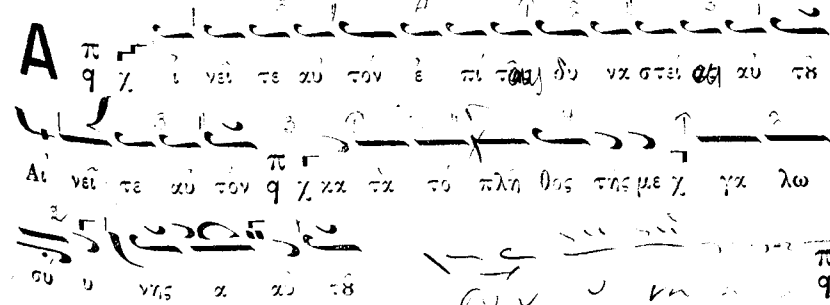 Α π q χ ἰ νεῖ τε αὐ τὸν ἐ πὶ ταῖς δυ να στεί αις αὐ τȣ
Αἰ νεῖ τε αὐ τόν π q χ κα τὰ τὸ πλῆ θος τῆς με χ γα λω
σύ υ νης α αὐ τȣ π q